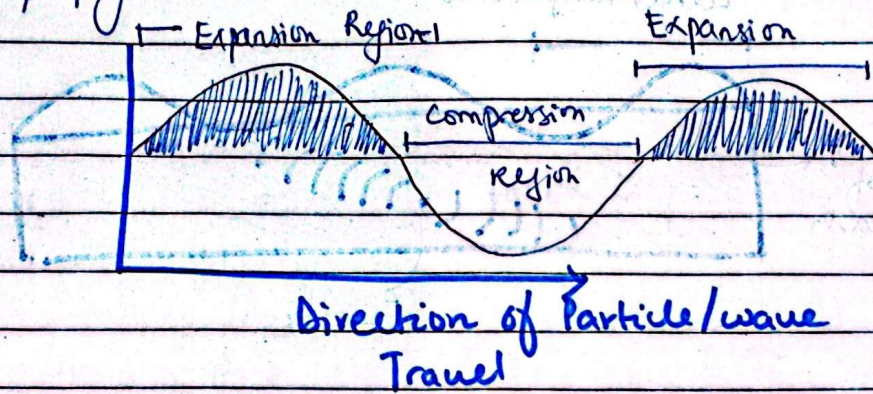 Expansion Region
Expansion
Compression
Region
Direction of Particle/wave
Travel